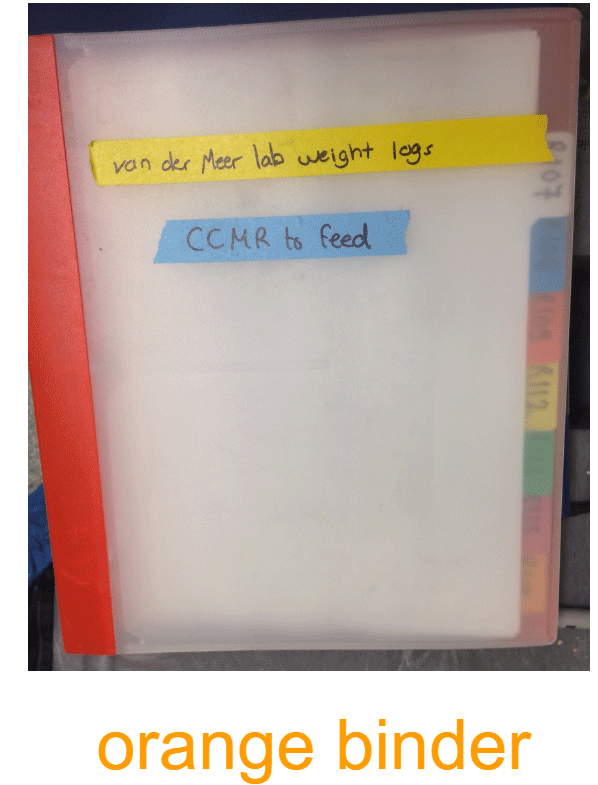 van der Meer lab weight logs
CCMR to feed
R107
R112
orange binder